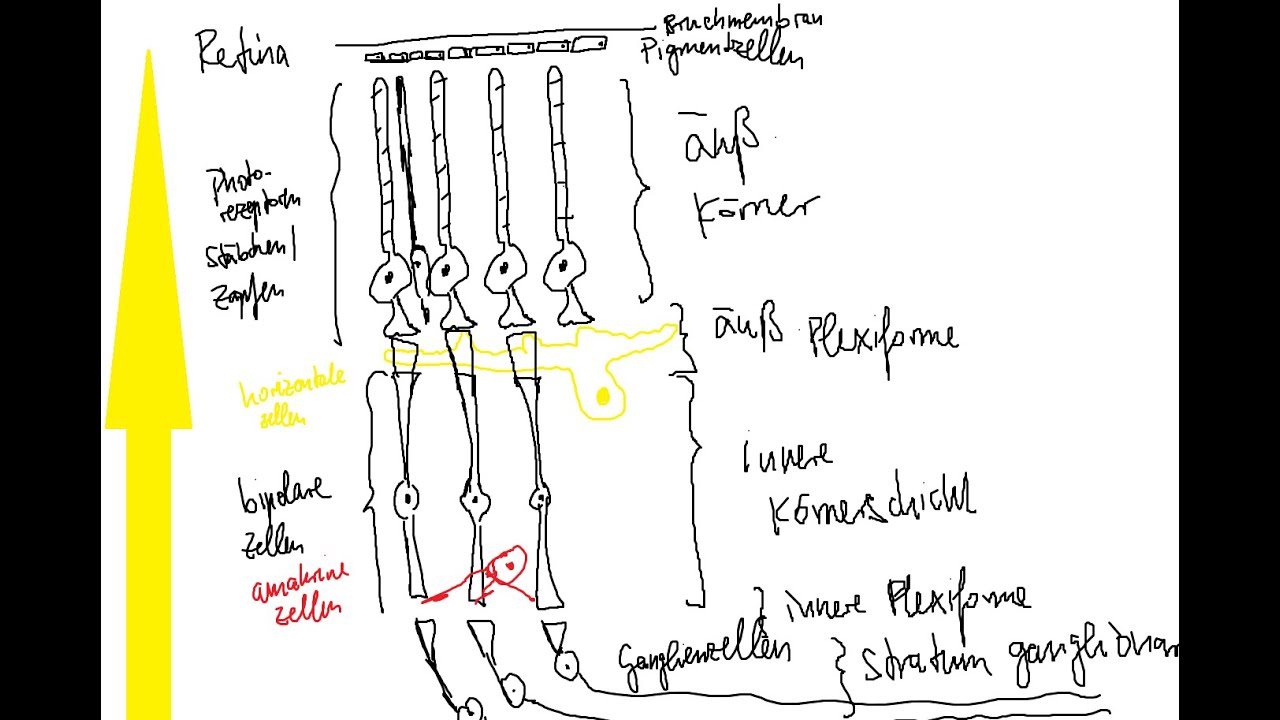 Retina
Bruchmembran
Pigmentzellen
äuß
Körner
Photo-
rezeptoren
Stäbchen/
Zapfen
äuß Plexiforme
horizontale
zellen
innere
Körnerschicht
bipolare
zellen
amakrine
zellen
innere Plexiforme
Ganglienzellen
Stratum ganglionar